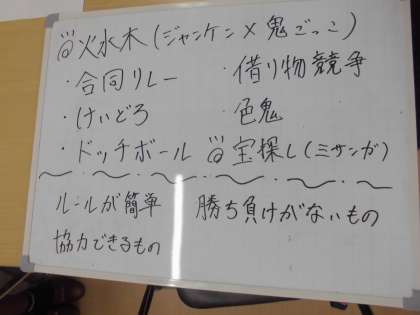 火水木(ジャンケン×鬼ごっこ)
・合同リレー ・借り物競争
・けいどろ ・色鬼
・ドッチボール 宝探し(ミサンガ)
ルールが簡単 勝ち負けがないもの
協力できるもの